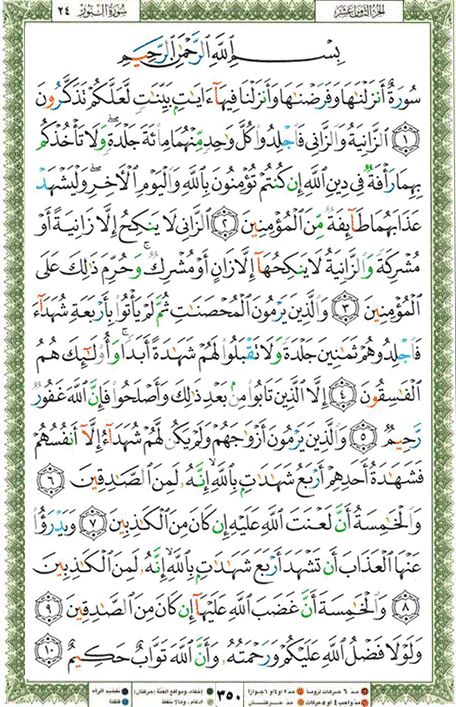 الجزء الثامن عشر سورة النور ٢٤
بِسْمِ ٱللَّهِ ٱلرَّحْمَٰنِ ٱلرَّحِيمِ
سُورَةٌ أَنزَلْنَٰهَا وَفَرَضْنَٰهَا وَأَنزَلْنَا فِيهَآ ءَايَٰتٍۭ بَيِّنَٰتٍ لَّعَلَّكُمْ تَذَكَّرُونَ
﴿١﴾ ٱلزَّانِيَةُ وَٱلزَّانِى فَٱجْلِدُوا۟ كُلَّ وَٰحِدٍ مِّنْهُمَا مِا۟ئَةَ جَلْدَةٍ ۖ وَلَا تَأْخُذْكُم
بِهِمَا رَأْفَةٌ فِى دِينِ ٱللَّهِ إِن كُنتُمْ تُؤْمِنُونَ بِٱللَّهِ وَٱلْيَوْمِ ٱلْءَاخِرِ ۖ وَلْيَشْهَدْ
عَذَابَهُمَا طَآئِفَةٌ مِّنَ ٱلْمُؤْمِنِينَ ﴿٢﴾ ٱلزَّانِى لَا يَنكِحُ إِلَّا زَانِيَةً أَوْ
مُشْرِكَةً وَٱلزَّانِيَةُ لَا يَنكِحُهَآ إِلَّا زَانٍ أَوْ مُشْرِكٌ ۚ وَحُرِّمَ ذَٰلِكَ عَلَى
ٱلْمُؤْمِنِينَ ﴿٣﴾ وَٱلَّذِينَ يَرْمُونَ ٱلْمُحْصَنَٰتِ ثُمَّ لَمْ يَأْتُوا۟ بِأَرْبَعَةِ شُهَدَآءَ
فَٱجْلِدُوهُمْ ثَمَٰنِينَ جَلْدَةً وَلَا تَقْبَلُوا۟ لَهُمْ شَهَٰدَةً أَبَدًا ۚ وَأُو۟لَٰٓئِكَ هُمُ
ٱلْفَٰسِقُونَ ﴿٤﴾ إِلَّا ٱلَّذِينَ تَابُوا۟ مِنۢ بَعْدِ ذَٰلِكَ وَأَصْلَحُوا۟ فَإِنَّ ٱللَّهَ غَفُورٌ
رَّحِيمٌ ﴿٥﴾ وَٱلَّذِينَ يَرْمُونَ أَزْوَٰجَهُمْ وَلَمْ يَكُن لَّهُمْ شُهَدَآءُ إِلَّآ أَنفُسُهُمْ
فَشَهَٰدَةُ أَحَدِهِمْ أَرْبَعُ شَهَٰدَٰتٍۭ بِٱللَّهِ ۙ إِنَّهُۥ لَمِنَ ٱلصَّٰدِقِينَ ﴿٦﴾
وَٱلْخَٰمِسَةُ أَنَّ لَعْنَتَ ٱللَّهِ عَلَيْهِ إِن كَانَ مِنَ ٱلْكَٰذِبِينَ ﴿٧﴾ وَيَدْرَؤُا۟
عَنْهَا ٱلْعَذَابَ أَن تَشْهَدَ أَرْبَعَ شَهَٰدَٰتٍۭ بِٱللَّهِ ۙ إِنَّهُۥ لَمِنَ ٱلْكَٰذِبِينَ
﴿٨﴾ وَٱلْخَٰمِسَةَ أَنَّ غَضَبَ ٱللَّهِ عَلَيْهَآ إِن كَانَ مِنَ ٱلصَّٰدِقِينَ ﴿٩﴾
وَلَوْلَا فَضْلُ ٱللَّهِ عَلَيْكُمْ وَرَحْمَتُهُۥ وَأَنَّ ٱللَّهَ تَوَّابٌ حَكِيمٌ ﴿١٠﴾
مد ٦ حركات لزوما مد ٢ او ٤ او ٦ جوازا ٣٥٠ إخفاء، ومواقع الغنة (حركتان) تفخيم الراء
مد واجب ٤ او ٥ حركات مد حركتان إدغام، وما لا يلفظ قلقلة